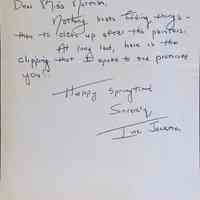 Dear Miss
Nothing beats hiding things -
than to clean up after the painters.
At long last, here is the
clipping that I spoke to and promised
you!!
Happy Springtime
Sincerely,